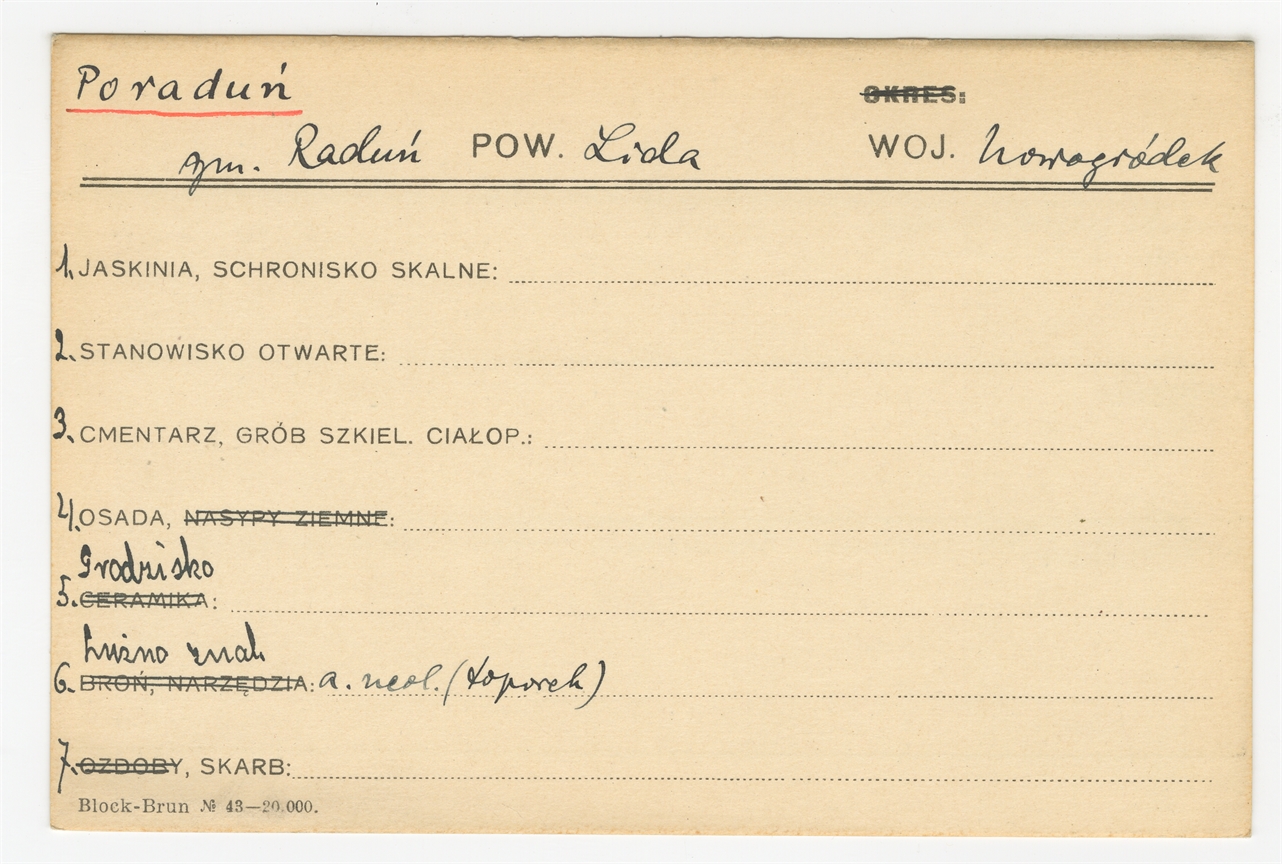 Poraduń
OKRES:
gm. Raduń POW. Lida WOJ. Nowogródek
1. JASKINIA, SCHRONISKO SKALNE:
2. STANOWISKO OTWARTE:
3. CMENTARZ, GRÓB SZKIEL. CIAŁOP.:
4. OSADA, NASYPY ZIEMNE:
Grodzisko
5. CERAMIKA:
Luźno znal.
6. BROŃ, NARZĘDZIA: a. neol. (toporek)
7. OZDOBY, SKARB:
Block-Brun № 43—20.000.